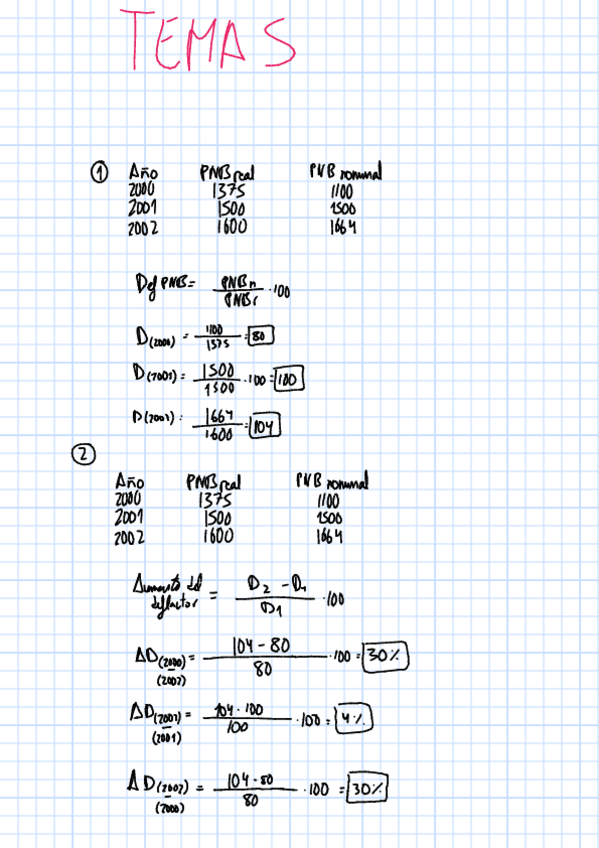 TEMAS
① Año PNB real PNB nominal
2000 1375 1100
2001 1500 1500
2002 1600 1664
Def PNB = PNBn / PNBr · 100
D(2000) = 1100 / 1375 = 80
D(2001) = 1500 / 1500 · 100 = 100
D(2002) = 1664 / 1600 = 104
②
Año PNB real PNB nominal
2000 1375 1100
2001 1500 1500
2002 1600 1664
Aumento del deflactor = D2 - D1 / D1 · 100
ΔD(2000) = 104 - 80 / 80 · 100 = 30%
(2002)
ΔD(2001) = 104 - 100 / 100 · 100 = 4%
(2001)
ΔD(2002) = 104 - 80 / 80 · 100 = 30%
(2000)